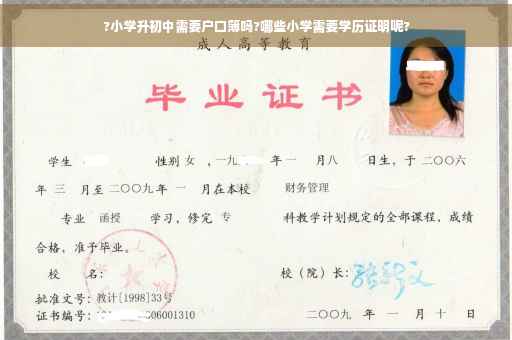 ?小学升初中需要户口薄吗?哪些小学需要学历证明呢?
成人高等教育
毕业证书
学生 性别 女 ，一九 年 一 月八 日生，于 二〇〇六
年 三 月至 二〇〇九 年 一 月在本校 财务管理
专业 函授 学习，修完 专 科教学计划规定的全部课程，成绩
合格，准予毕业。
校 名： 校（院）长：
批准文号：教计[1998]33号
证书编号： 06001310 二〇〇九 年 一 月 十 日